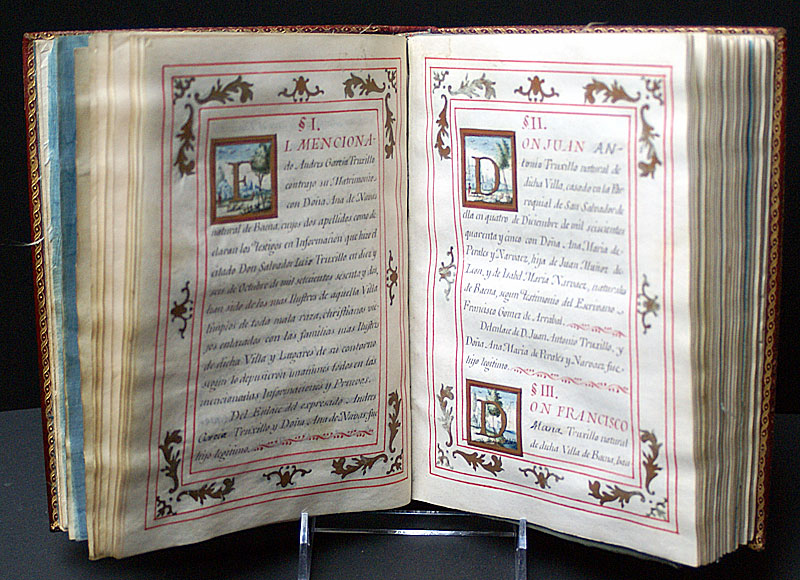 § I.
EL MENCIONA-
do Andres Garcia Truxillo
contrajo su Matrimonio
con Doña Ana de Navas
natural de Baena, cuyos dos apellidos como de
claran los Testigos en Informacion que hizo el
citado Don Salvador Lucio Truxillo en diez y
seis de Octubre de mil setecientos sesenta y dos,
han sido de los mas Ilustres de aquella Villa
limpios de toda mala raza, christianos vie
enlazados con las familias mas Ilustres
de dicha Villa y Lugares de su contorno
segun lo depusieron unanimes todos en las
mencionadas Informaciones y Pruevas.
Del Enlace del expresado Andres
Garcia Truxillo y Doña Ana de Navas, fue
hijo legitimo
§ II.
DON JUAN AN-
tonio Truxillo natural de
dicha Villa, casado en la Par
roquial de San Salvador de
ella en quatro de Diciembre de mil seiscientos
quarenta y cinco con Doña Ana Maria de
Perales y Narvaez, hija de Juan Muñoz de
Leon, y de Isabel Maria Narvaez, naturales
de Baena, segun testimonio del Escrivano
Francisco Gomez de Arrabal.
Del enlace de D. Juan Antonio Truxillo, y
Doña Ana Maria de Perales y Narvaez, fue
hijo legitimo
§ III.
DON FRANCISCO
Maria Truxillo natural
de dicha Villa de Baena, bau